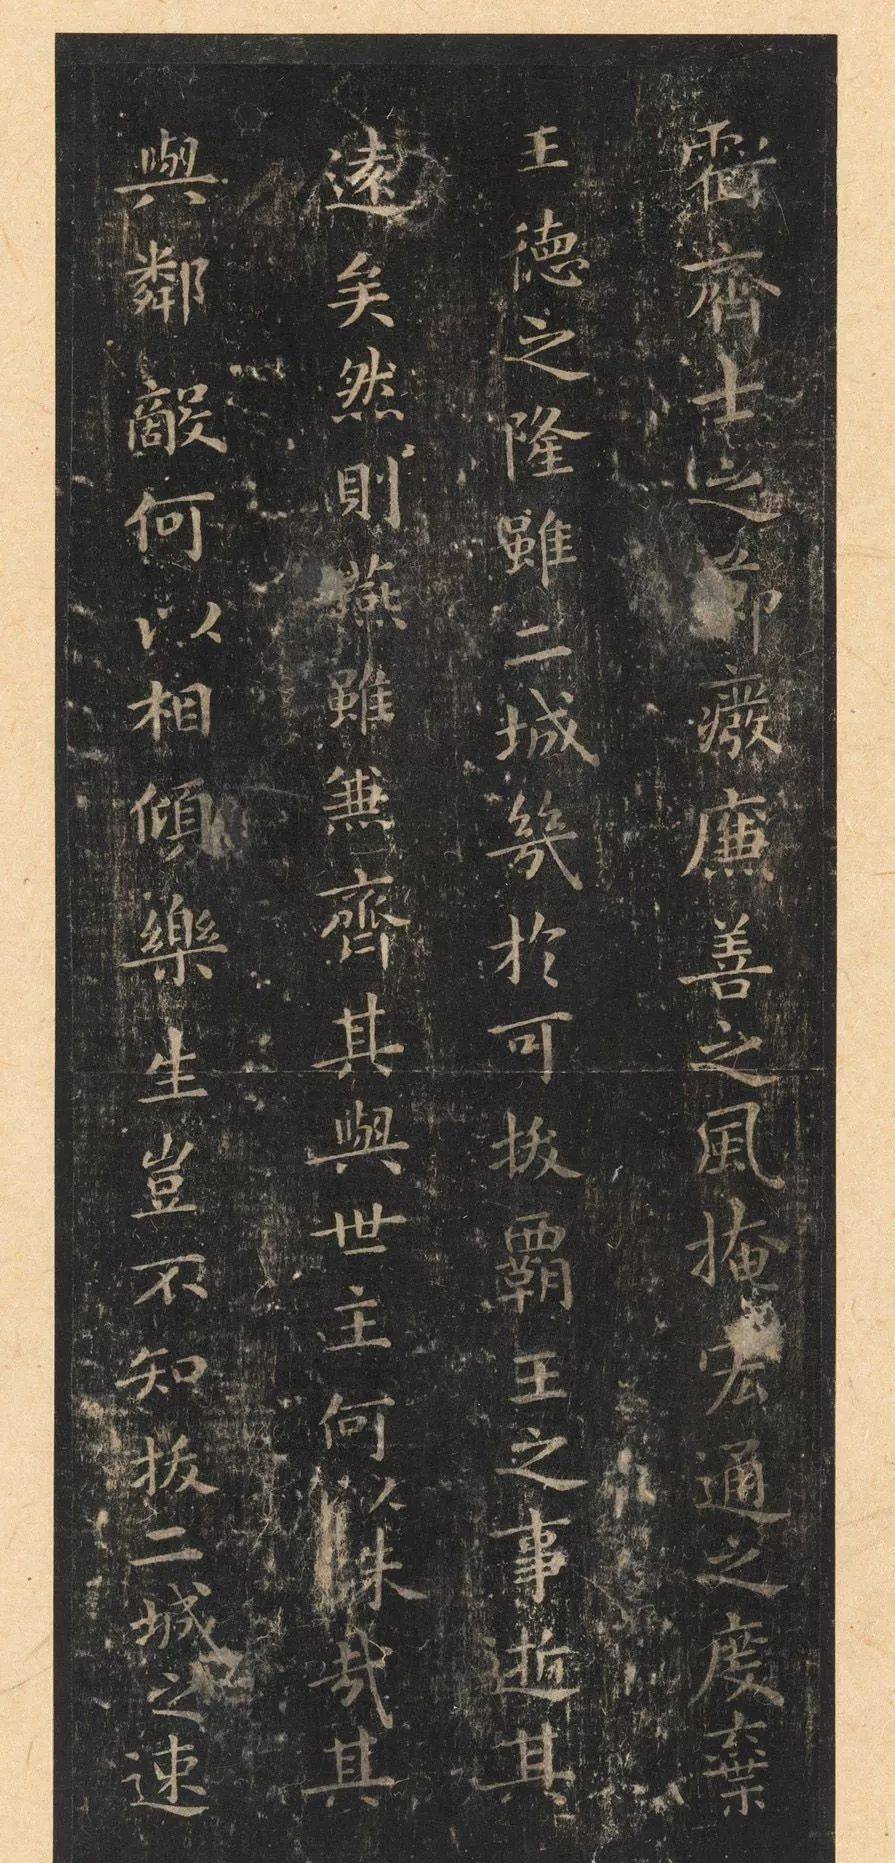 虧齊士之節廢廉善之風掩宏通之度棄
王德之隆雖二城幾於可拔霸王之事逝其
遠矣然則燕雖兼齊其與世主何以殊哉其
與鄰敵何以相傾樂生豈不知拔二城之速